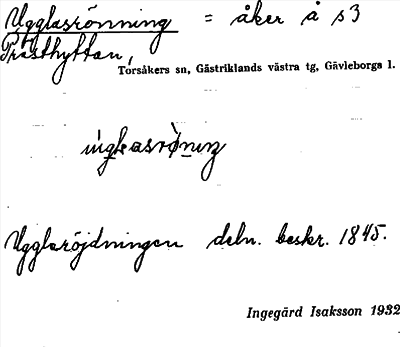 Ugglasrönning = åker å s3
Prästhyttan,
Torsåkers sn, Gästriklands västra tg, Gävleborgs l.
Ugglaröjdningen deln. beskr. 1845.
Ingegärd Isaksson 1932